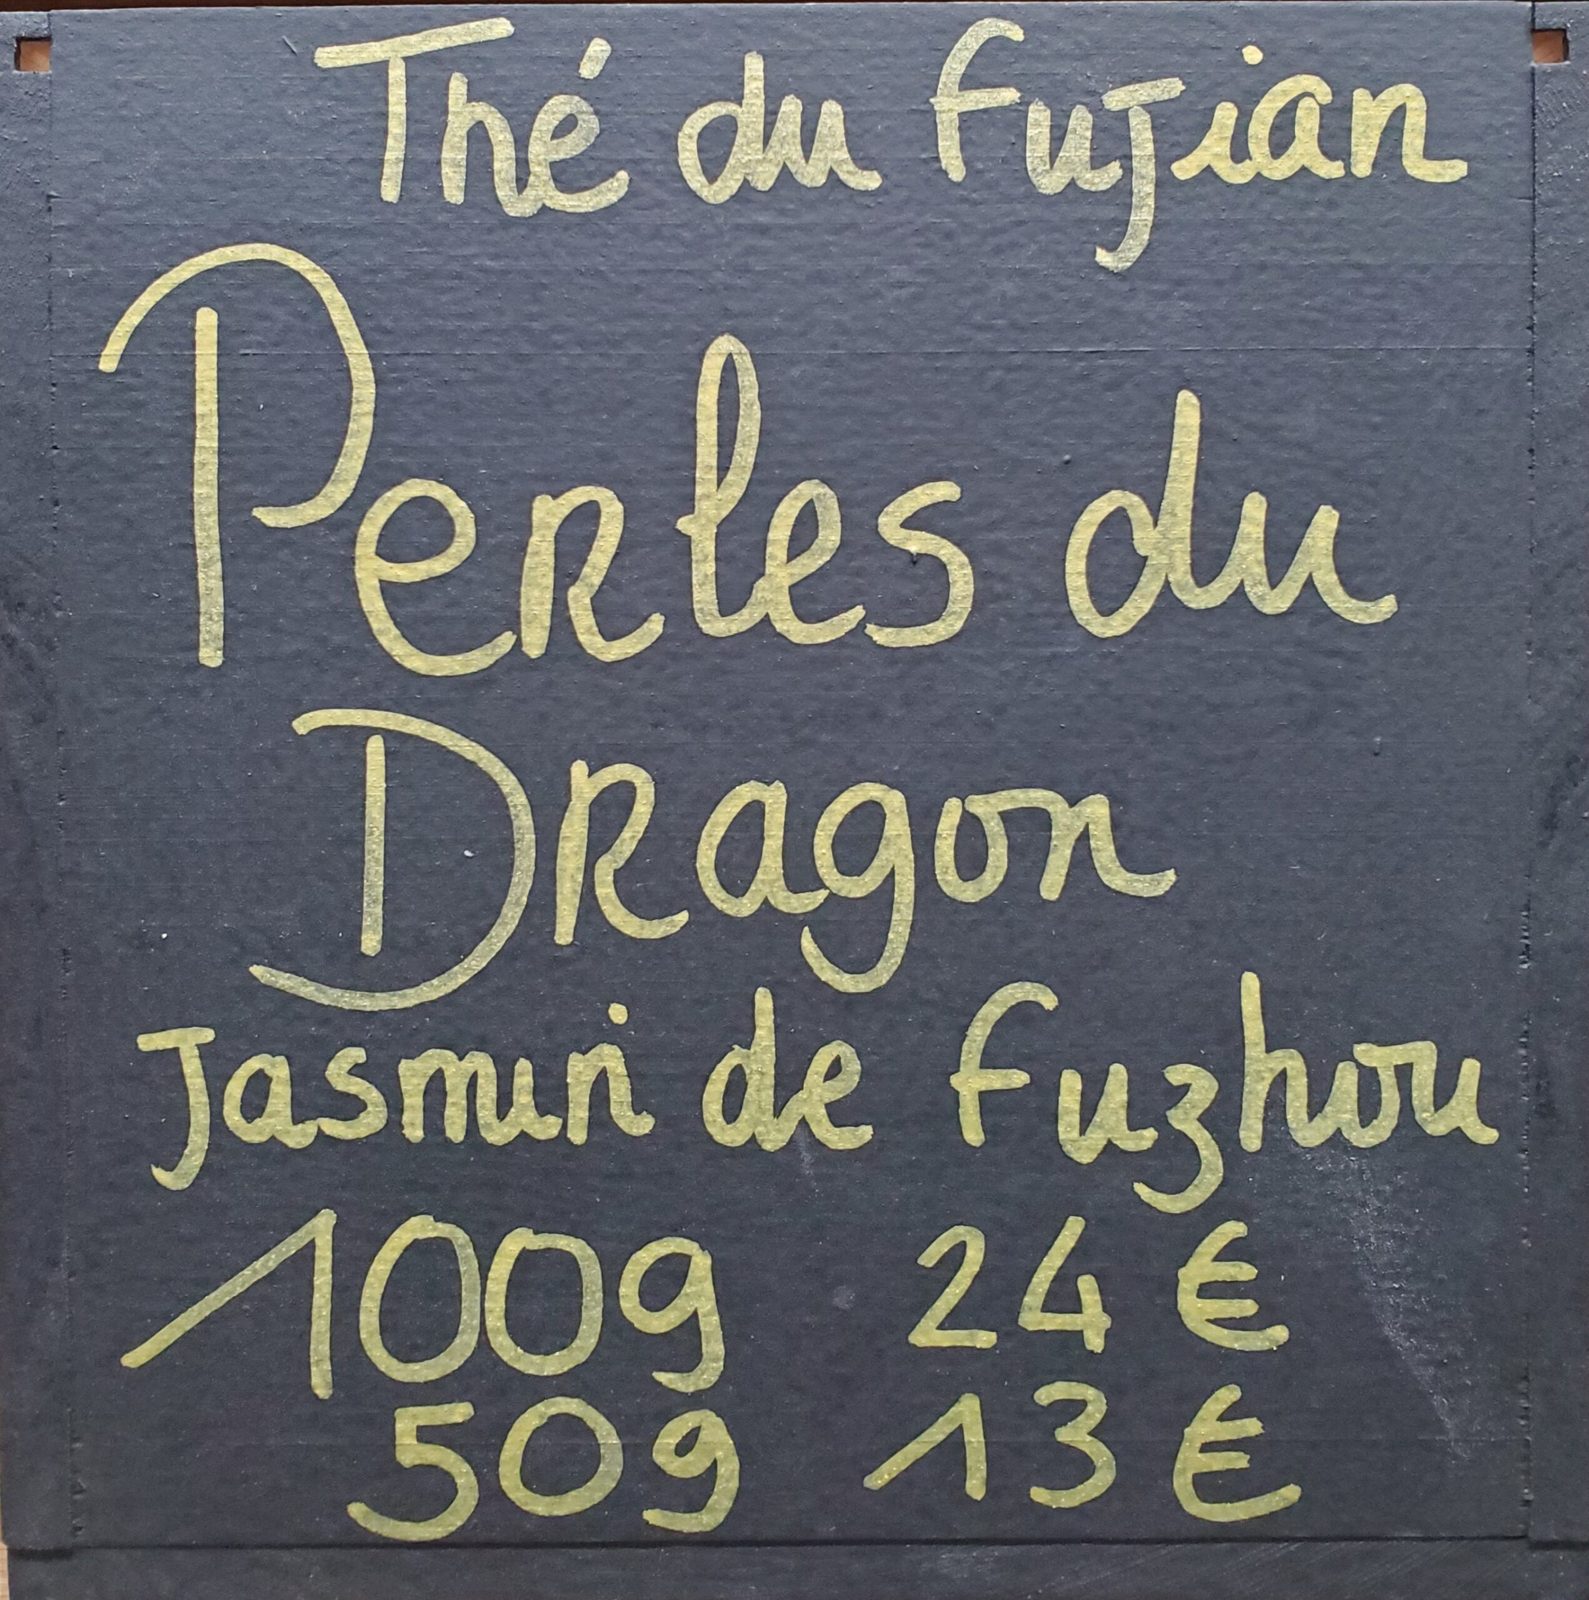 Thé du Fujian
Perles du
Dragon
Jasmin de Fuzhou
100g 24 €
50g 13 €